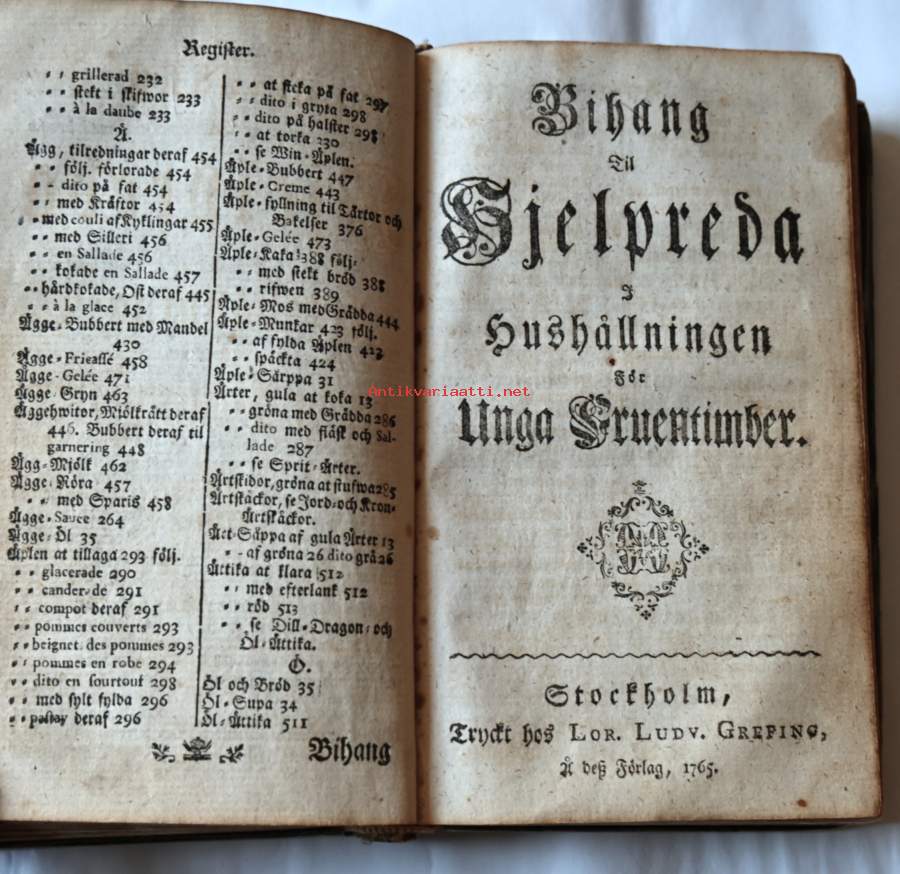 Register.
⸗ ⸗ grillerad 232
⸗ ⸗ stekt i skifwor 233
⸗ ⸗ à la daube 233
Ä.
Ägg, tilredningar deraf 454
⸗ ⸗ följ. förlorade 454
⸗ ⸗ dito på fat 454
⸗ ⸗ med Kräftor 454
⸗ ⸗ med couli af Kyklingar 455
⸗ ⸗ med Silleri 456
⸗ ⸗ en Sallade 456
⸗ ⸗ kokade en Sallade 457
⸗ ⸗ hårdkokade, Ost deraf 445
⸗ ⸗ à la glace 452
Ägge⸗Bubbert med Mandel
430
Ägge⸗Fricassé 458
Ägge⸗Gelée 471
Ägge⸗Gryn 463
Äggehwitor, Mjölkrätt deraf
446. Bubbert deraf til
garnering 448
Ägg⸗Mjölk 462
Ägge⸗Röra 457
⸗ ⸗ med Sparis 458
Ägge⸗Sauce 264
Ägge⸗Öl 35
Äplen at tillaga 293 följ.
⸗ ⸗ glacerade 290
⸗ ⸗ canderade 291
⸗ ⸗ compot deraf 291
⸗ ⸗ pommes couverts 293
⸗ ⸗ beignet des pommes 293
⸗ ⸗ pommes en robe 294
⸗ ⸗ dito en sourtout 298
⸗ ⸗ med sylt fylda 296
⸗ ⸗ pastay deraf 296
⸗ ⸗ at steka på fat 297
⸗ ⸗ dito i gryta 298
⸗ ⸗ dito på halster 298
⸗ ⸗ at torka 330
⸗ ⸗ se Win⸗Äplen.
Äple⸗Bubbert 447
Äple⸗Creme 443
Äple⸗fyllning til Tårtor och
Bakelser 376
Äple⸗Gelée 473
Äple⸗Kaka 388 följ.
⸗ ⸗ med stekt bröd 388
⸗ ⸗ rifwen 389
Äple⸗Mos med Grädda 444
Äple⸗Munkar 423 följ.
⸗ ⸗ af fylda Äplen 423
⸗ ⸗ späckta 424
Äple⸗Särppa 31
Ärter, gula at koka 13
⸗ ⸗ gröna med Grädda 286
⸗ ⸗ dito med fläsk och Sal⸗
lade 287
⸗ ⸗ se Sprit⸗Ärter.
Ärtskidor, gröna at stufwa 285
Ärtskäckor, se Jord⸗ och Kron⸗
Ärtskäckor.
Ärt⸗Säppa af gula Ärter 13
⸗ ⸗ af gröna 26 dito grå 26
Ättika at klara 512
⸗ ⸗ med efterlank 512
⸗ ⸗ röd 513
⸗ ⸗ se Dill⸗Dragon⸗ och
Öl⸗Ättika.
Ö.
Öl och Bröd 35
Öl⸗Supa 34
Öl⸗Ättika 511
Bihang
Bihang
Til
Hjelpreda
I
Hushållningen
För
Unga Fruentimber.
Stockholm,
Tryckt hos LOR. LUDV. GREFING,
Å deß Förlag, 1765.
Antikvariaatti.net